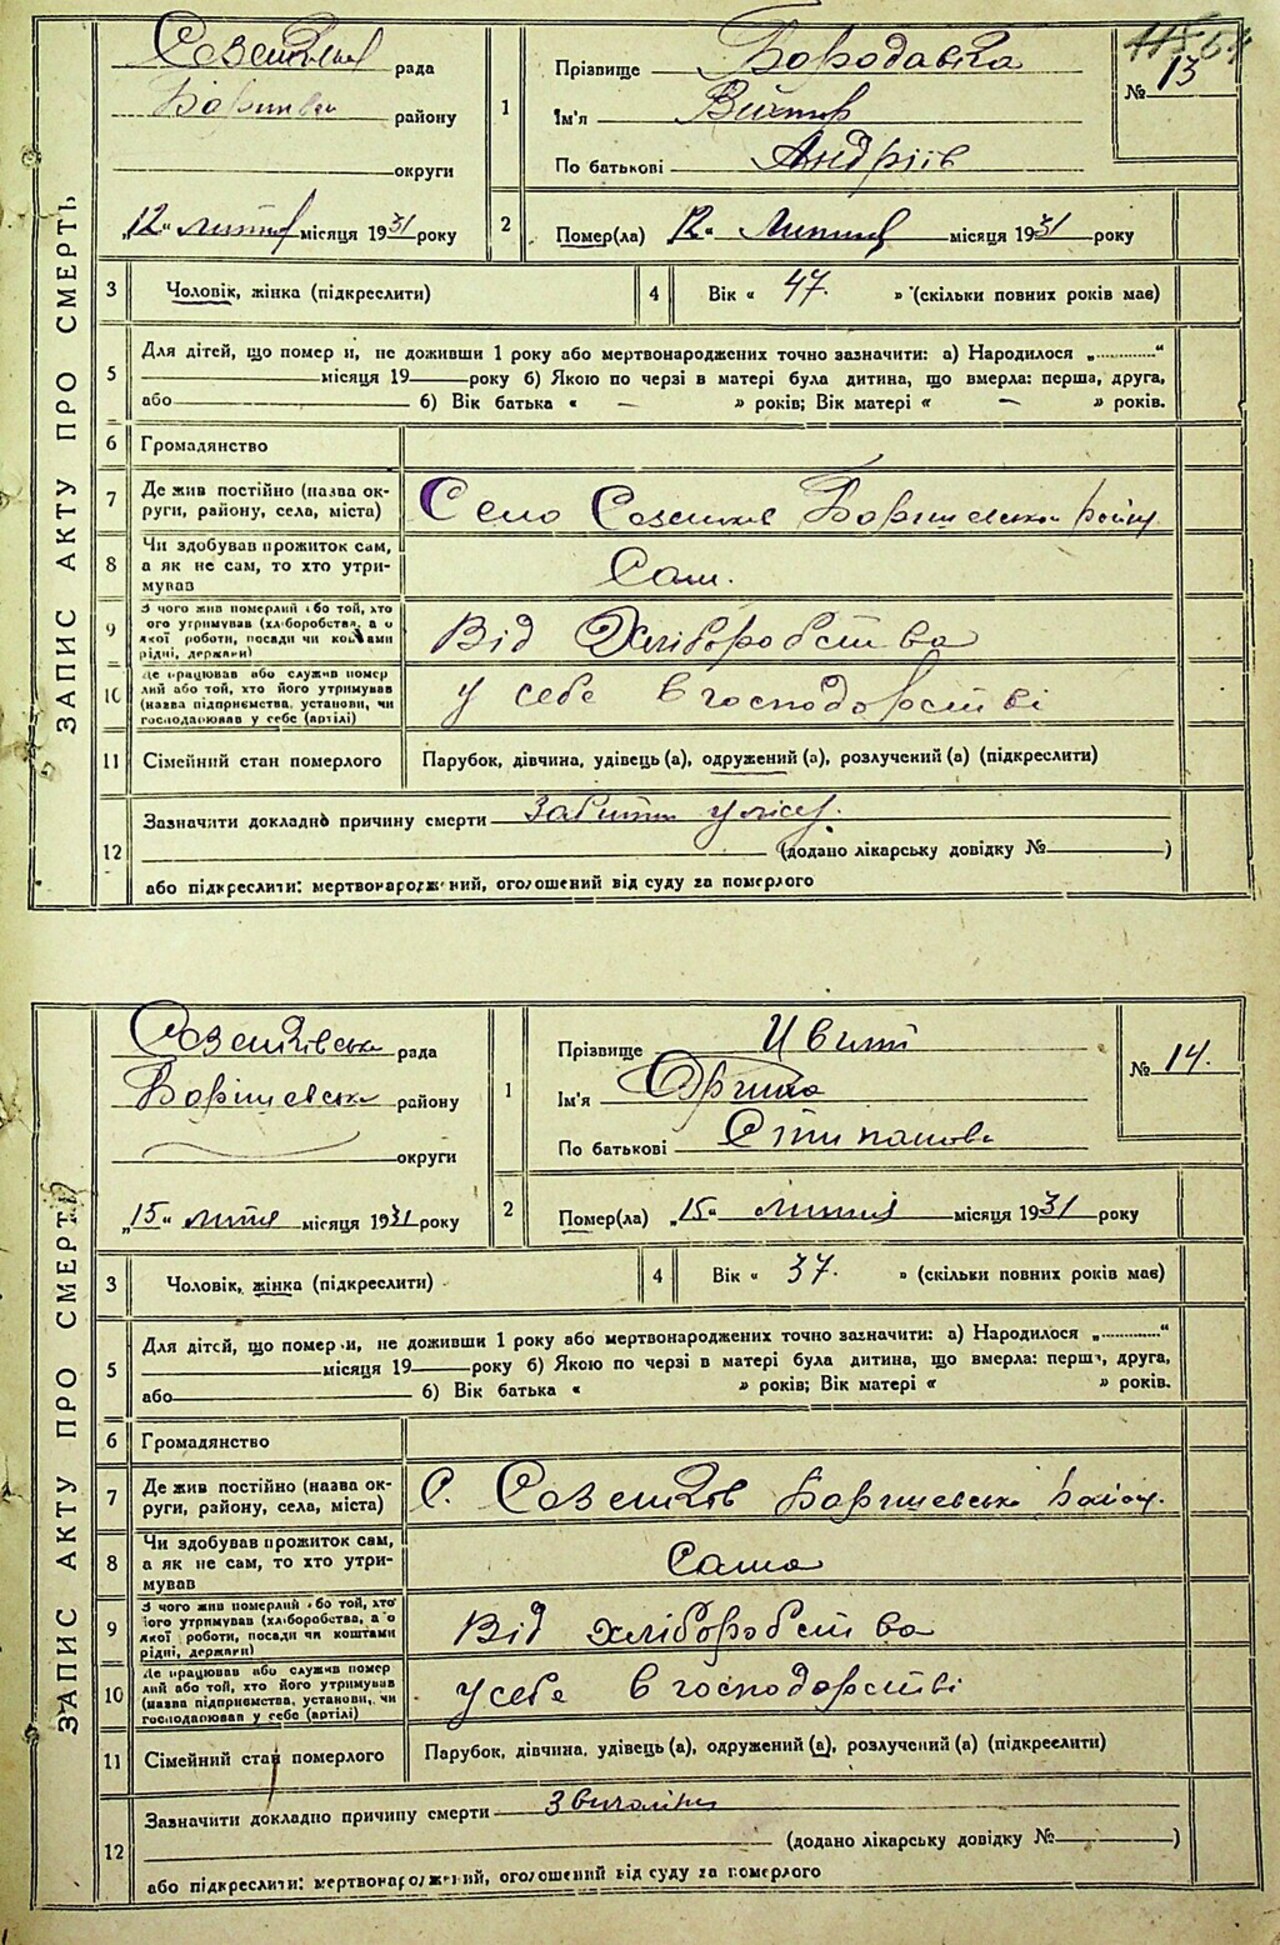 ЗАПИС АКТУ ПРО СМЕРТЬ
рада
району
округи
„12“ місяця 1931 року
1
Прізвище Бородавка
Ім'я Виктор
По батькові Андріїв
№ 13
2
Помер(ла) 12“ місяця 1931 року
3 Чоловік, жінка (підкреслити)
4 Вік « 47. » (скільки повних років має)
5
Для дітей, що помер и, не доживши 1 року або мертвонароджених точно зазначити: а) Народилося „............“
місяця 19 року б) Якою по черзі в матері була дитина, що вмерла: перша, друга,
або 6) Вік батька « – » років; Вік матері « – » років.
6 Громадянство
7
Де жив постійно (назва ок-
руги, району, села, міста)
Село
8
Чи здобував прожиток сам,
а як не сам, то хто утри-
мував
Сам.
9
З чого жив померлий або той, хто
ого утримував (хліборобства, а о
якої роботи, посади чи коштами
рідні, держави)
Від Хліборобства
10
Де працював або служив помер
лий або той, хто його утримував
(назва підприємства, установи, чи
господарював у себе (артілі)
у себе в господарстві
11 Сімейний стан померлого
Парубок, дівчина, удівець (а), одружений (а), розлучений (а) (підкреслити)
12
Зазначити докладно причину смерти у лісу.
(додано лікарську довідку № )
або підкреслити: мертвонароджений, оголошений від суду за померлого
ЗАПИС АКТУ ПРО СМЕРТЬ
рада
району
округи
„15“ місяця 1931 року
1
Прізвище Цвит
Ім'я Оргина
По батькові Стипанова
№ 14.
2
Помер(ла) „15“ місяця 1931 року
3 Чоловік, жінка (підкреслити)
4 Вік « 37. » (скільки повних років має)
5
Для дітей, що помер и, не доживши 1 року або мертвонароджених точно зазначити: а) Народилося „............“
місяця 19 року б) Якою по черзі в матері була дитина, що вмерла: перша, друга,
або 6) Вік батька « » років; Вік матері « » років.
6 Громадянство
7
Де жив постійно (назва ок-
руги, району, села, міста)
С.
8
Чи здобував прожиток сам,
а як не сам, то хто утри-
мував
Сама
9
З чого жив померлий або той, хто
його утримував (хліборобства, а о
якої роботи, посади чи коштами
рідні, держави)
Від хліборобства
10
Де працював або служив помер
лий або той, хто його утримував
(назва підприємства, установи, чи
господарював у себе (артілі)
у себе в господарстві
11 Сімейний стан померлого
Парубок, дівчина, удівець (а), одружений (а), розлучений (а) (підкреслити)
12
Зазначити докладно причину смерти
(додано лікарську довідку № )
або підкреслити: мертвонароджений, оголошений від суду за померлого